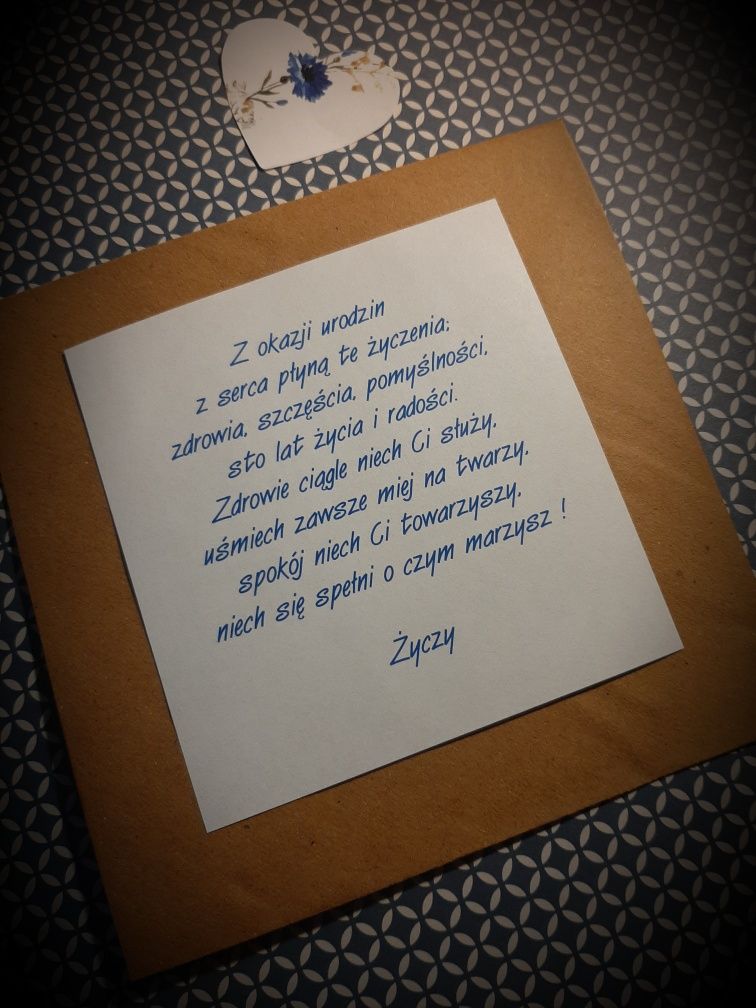 Z okazji urodzin
z serca płyną te życzenia:
zdrowia, szczęścia, pomyślności,
sto lat życia i radości.
Zdrowie ciągle niech Ci służy,
uśmiech zawsze miej na twarzy,
spokój niech Ci towarzyszy,
niech się spełni o czym marzysz !
Życzy